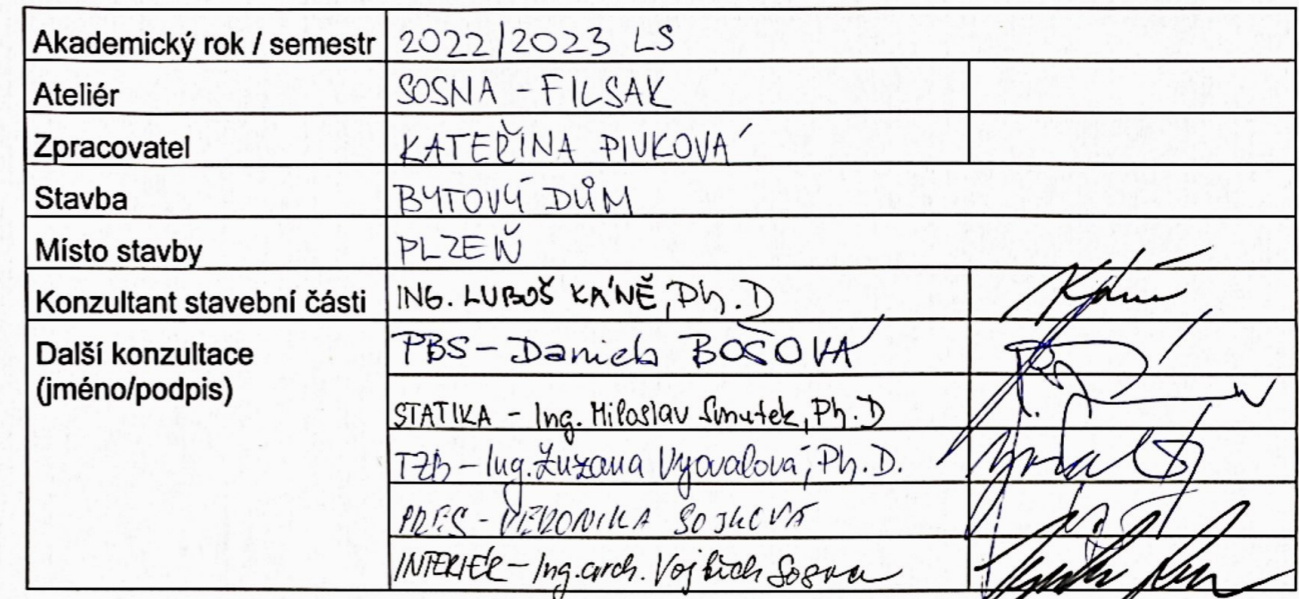 Akademický rok / semestr 2022/2023 LS
Ateliér SOSNA - FILSAK
Zpracovatel KATEŘINA PIVKOVÁ
Stavba BYTOVÝ DŮM
Místo stavby PLZEŇ
Konzultant stavební části ING. LUBOŠ KÁNĚ, Ph.D
Další konzultace PBS - Daniela BOŠOVÁ
(jméno/podpis)
STATIKA - Ing. Miloslav Smutek, Ph.D
TZB - Ing. Zuzana Vyoralová, Ph.D.
PRES - VERONIKA SOJKOVÁ
INTERIÉR - Ing. arch. Vojtěch Sosna